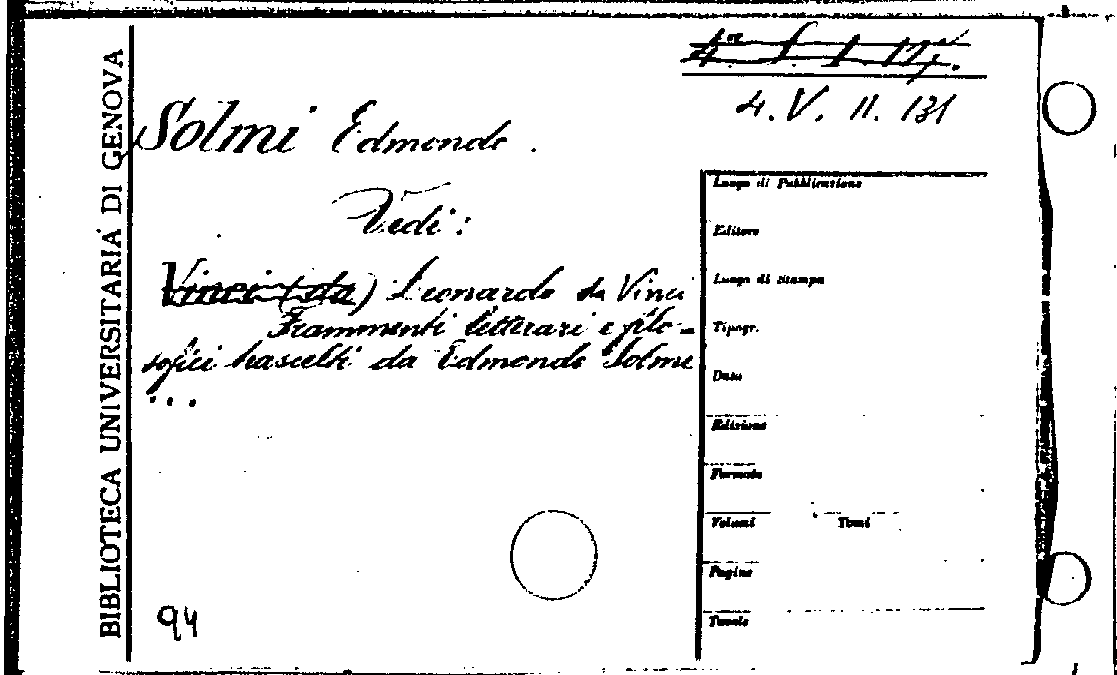 BIBLIOTECA UNIVERSITARIA DI GENOVA
4. V. 11. 131
Solmi Edmondo.
Vedi:
Vinci (da) Leonardo da Vinci
Frammenti letterari e filo-
sofici trascelti da Edmondo Solmi
...
94
Luogo di Pubblicazione
Editore
Luogo di Stampa
Tipogr.
Data
Edizione
Formato
Volumi Tomi
Pagine
Tavole